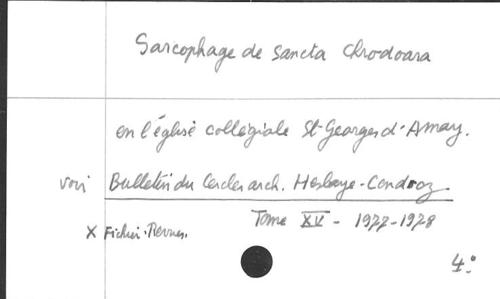 Sarcophage de Sancta Chrodoara
en l'église collégiale St-Georges d'Amay.
voir Bulletin du Cercle arch. Hesbaye-Condroz
Tome XV - 1977-1978
X Fichier. Revues.
4°